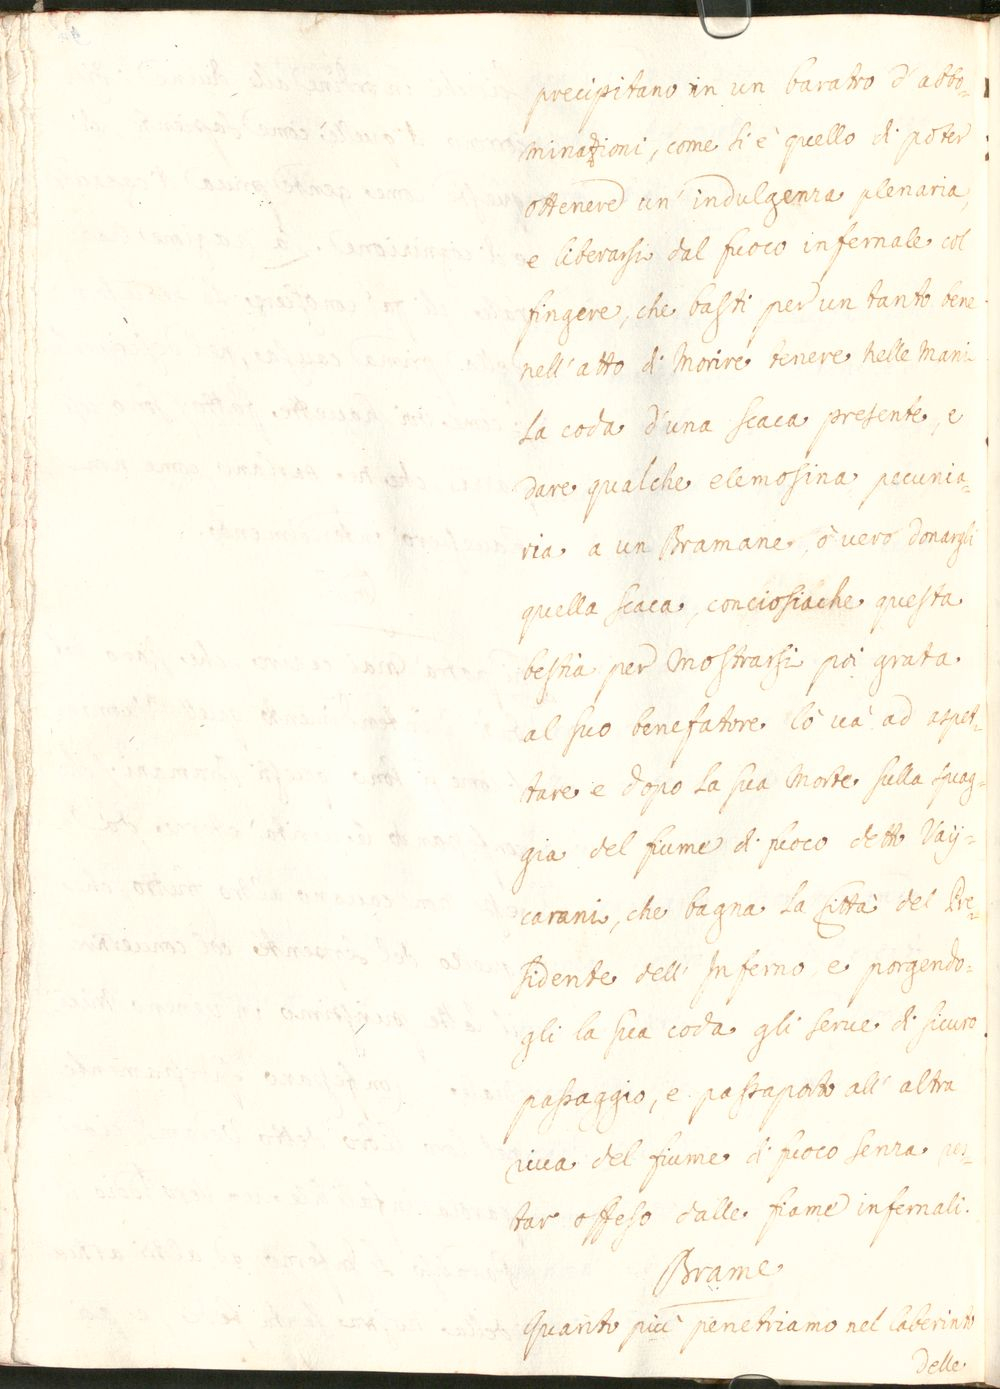 precipitano in un baratro d'abbo-
minazioni, come si è quello di poter
ottenere un' indulgenza plenaria,
e liberarsi dal fuoco infernale col
fingere, che basti per un tanto bene
nell'atto di morire tenere nelle mani
la coda d'una scaca presente, e
dare qualche elemosina pecunia-
ria a un Bramane, ò vero donargli
quella scaca, conciosiache questa
bestia per mostrarsi poi grata
al suo benefatore lò và ad aspet-
tare e dopo la sua morte sulla spiag-
gia del fiume di fuoco detto Vaij-
carani, che bagna la Città del Pre-
sidente dell' Inferno, e porgendo-
gli la sua coda gli serve di sicuro
passaggio, e passaporto all' altra
riva del fiume di fuoco senza res-
tar offeso dalle fiame infernali.
Brame
Quanto più penetriamo nel laberinto
delle